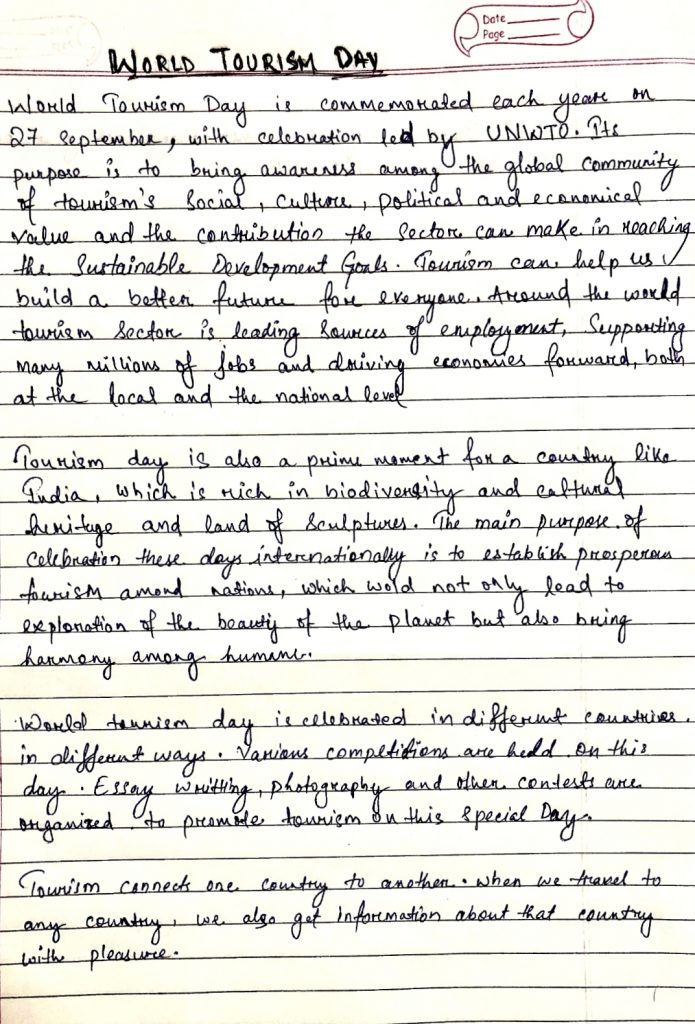 Date
Page
WORLD TOURISM DAY
World Tourism Day is commemorated each year on
27 September, with celebration led by UNWTO. Its
purpose is to bring awareness among the global community
of tourism's Social, Culture, political and economical
value and the contribution the Sector can make in reaching
the Sustainable Development Goals. Tourism can help us
build a better future for everyone. Around the world
tourism Sector is leading Sources of employment, Supporting
many millions of jobs and driving economies forward, both
at the local and the national level
Tourism day is also a prime moment for a country like
India, which is rich in biodiversity and cultural
heritage and land of Sculptures. The main purpose of
celebration these days internationally is to establish prosperous
tourism amond nations, which wold not only lead to
exploration of the beauty of the planet but also bring
harmony among humans.
World tourism day is celebrated in different countries.
in different ways. Various competitions are held on this
day. Essay writting, photography and other contests are
organized to promote tourism on this Special Day.
Tourism connects one country to another. When we travel to
any country, we also get information about that country
with pleasure.